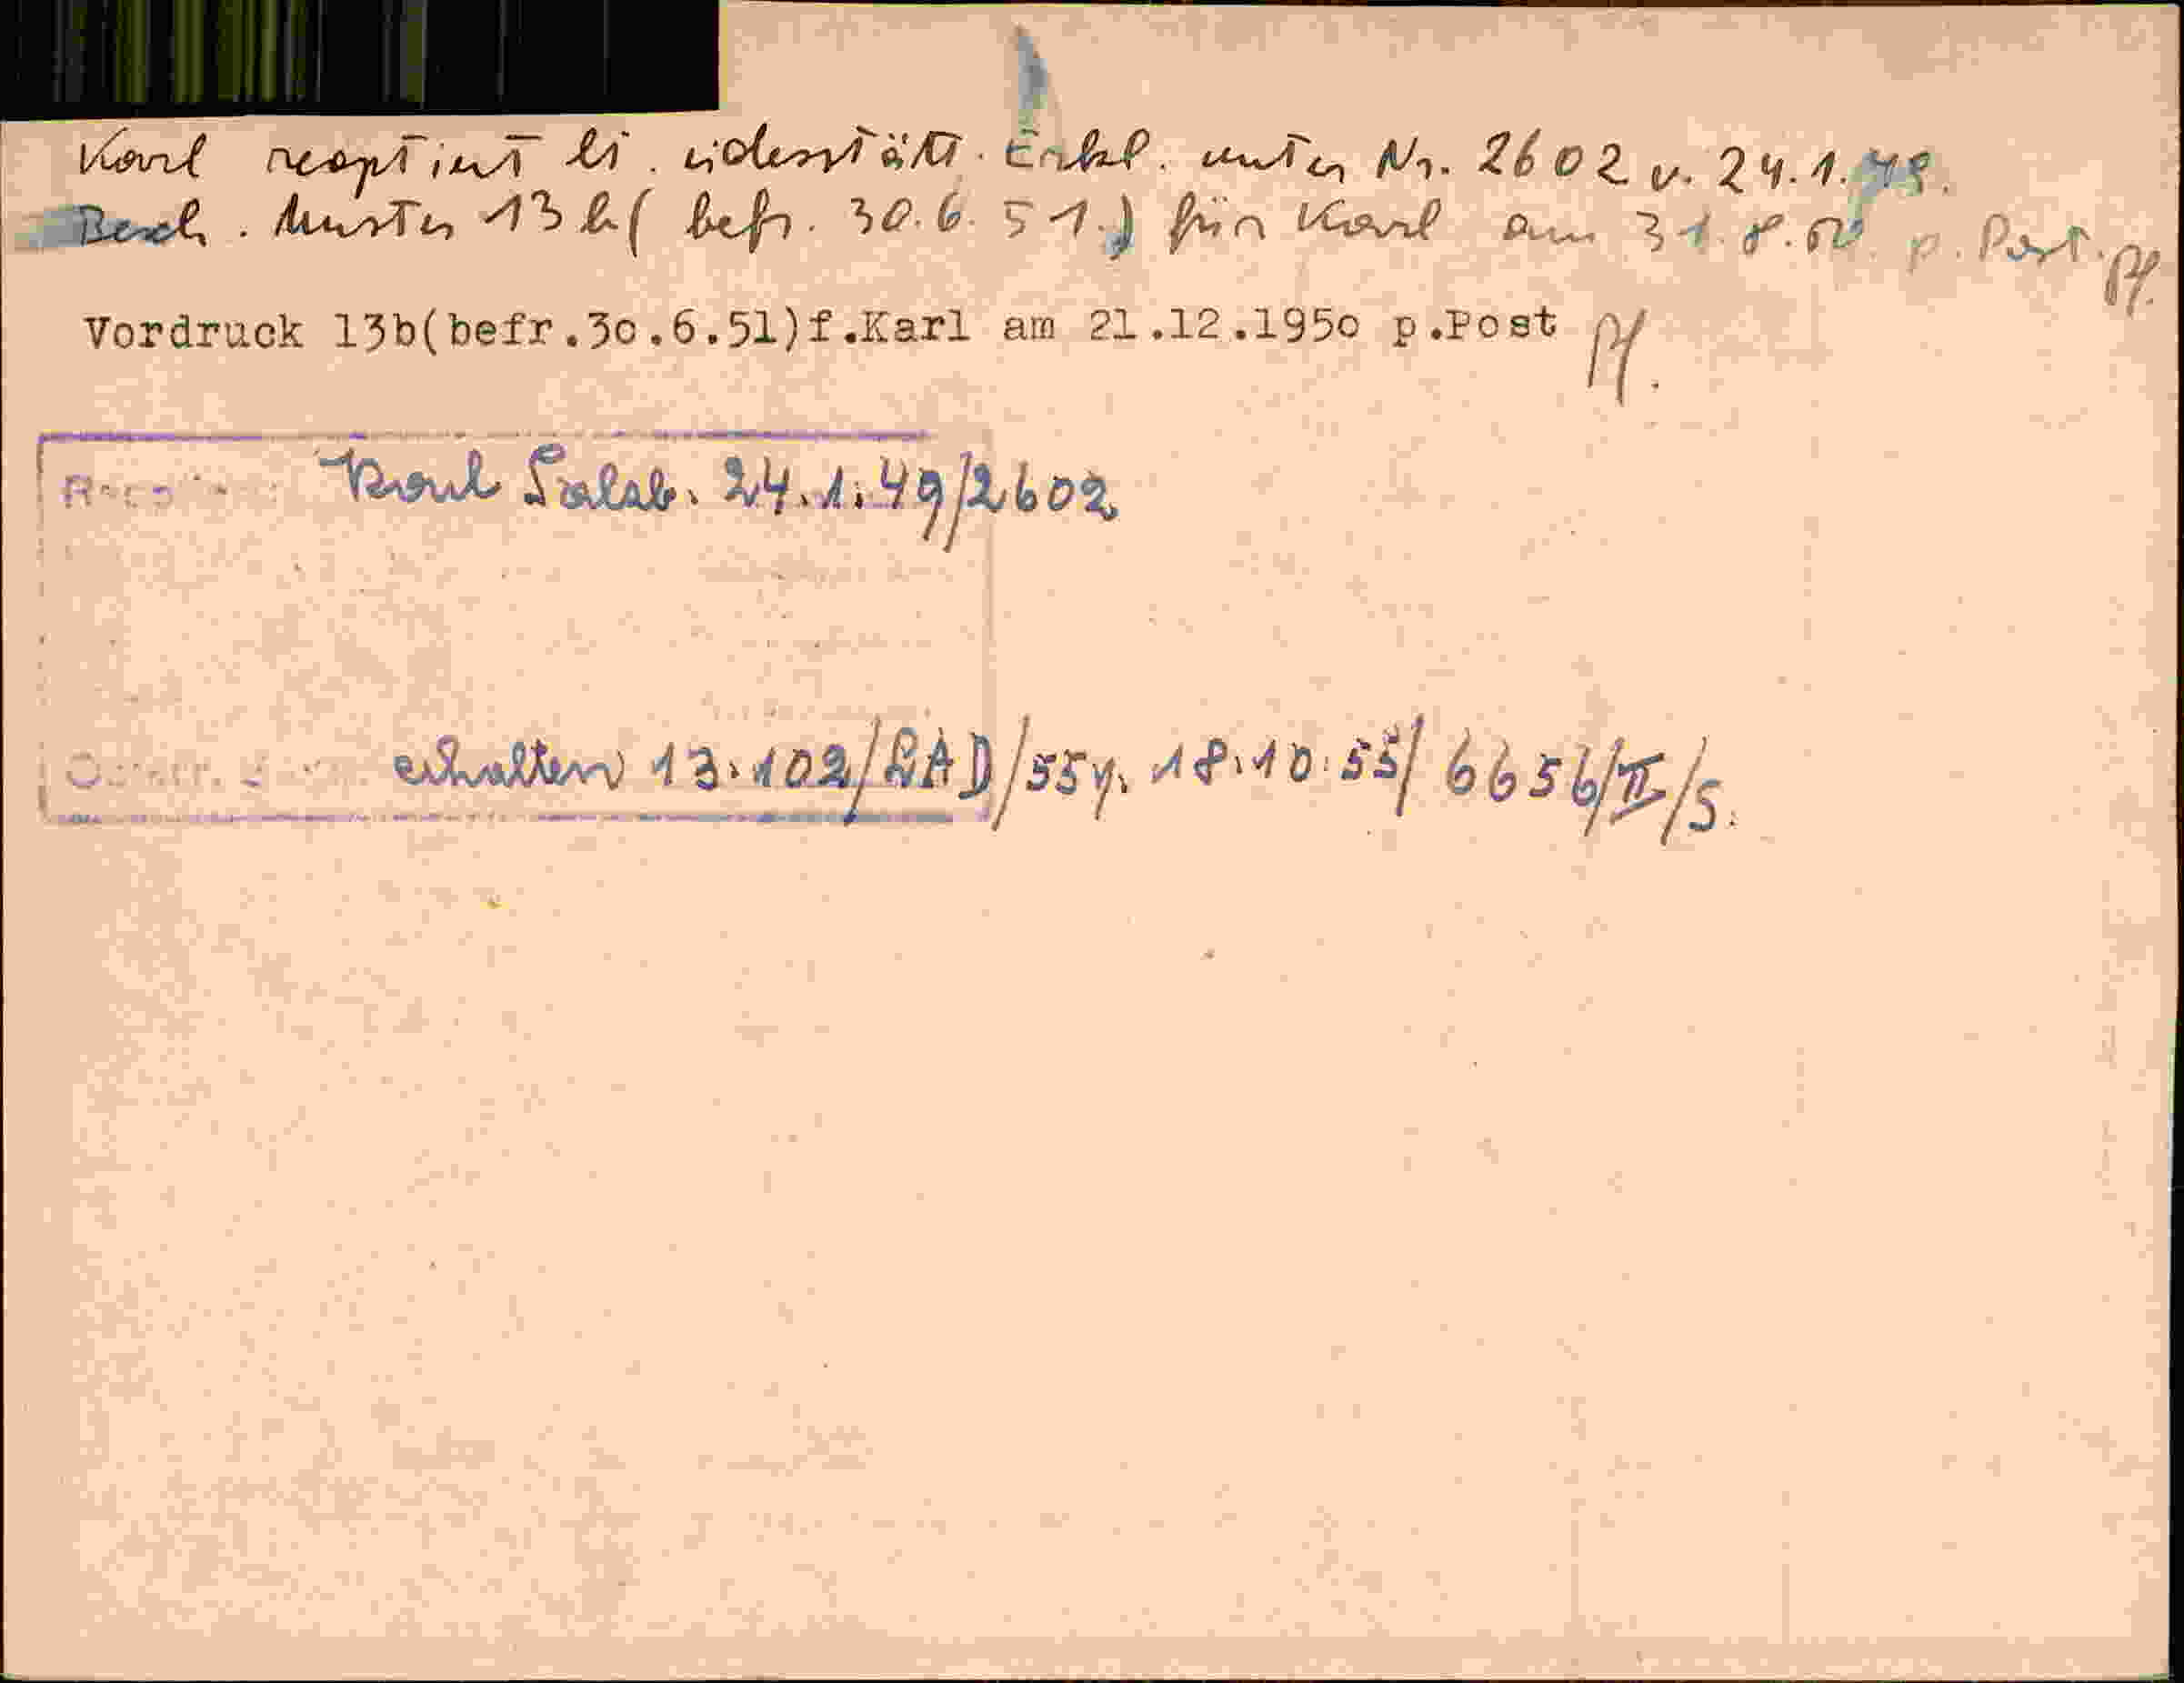 Karl reoptiert lt. eidesstättl. Erkl. unter Nr. 2602 v. 24.1.49.
Besch. Muster 13 b ( befr. 30.6.51.) für Karl am 31.8.50 p. Post. Pf.
Vordruck 13b(befr.3o.6.51)f.Karl am 21.12.195o p.Post Pf.
Karl Salzb. 24.1.49/2602
erhalten 13.102/RAD/55 v. 18.10.55/ 6656/II/S.